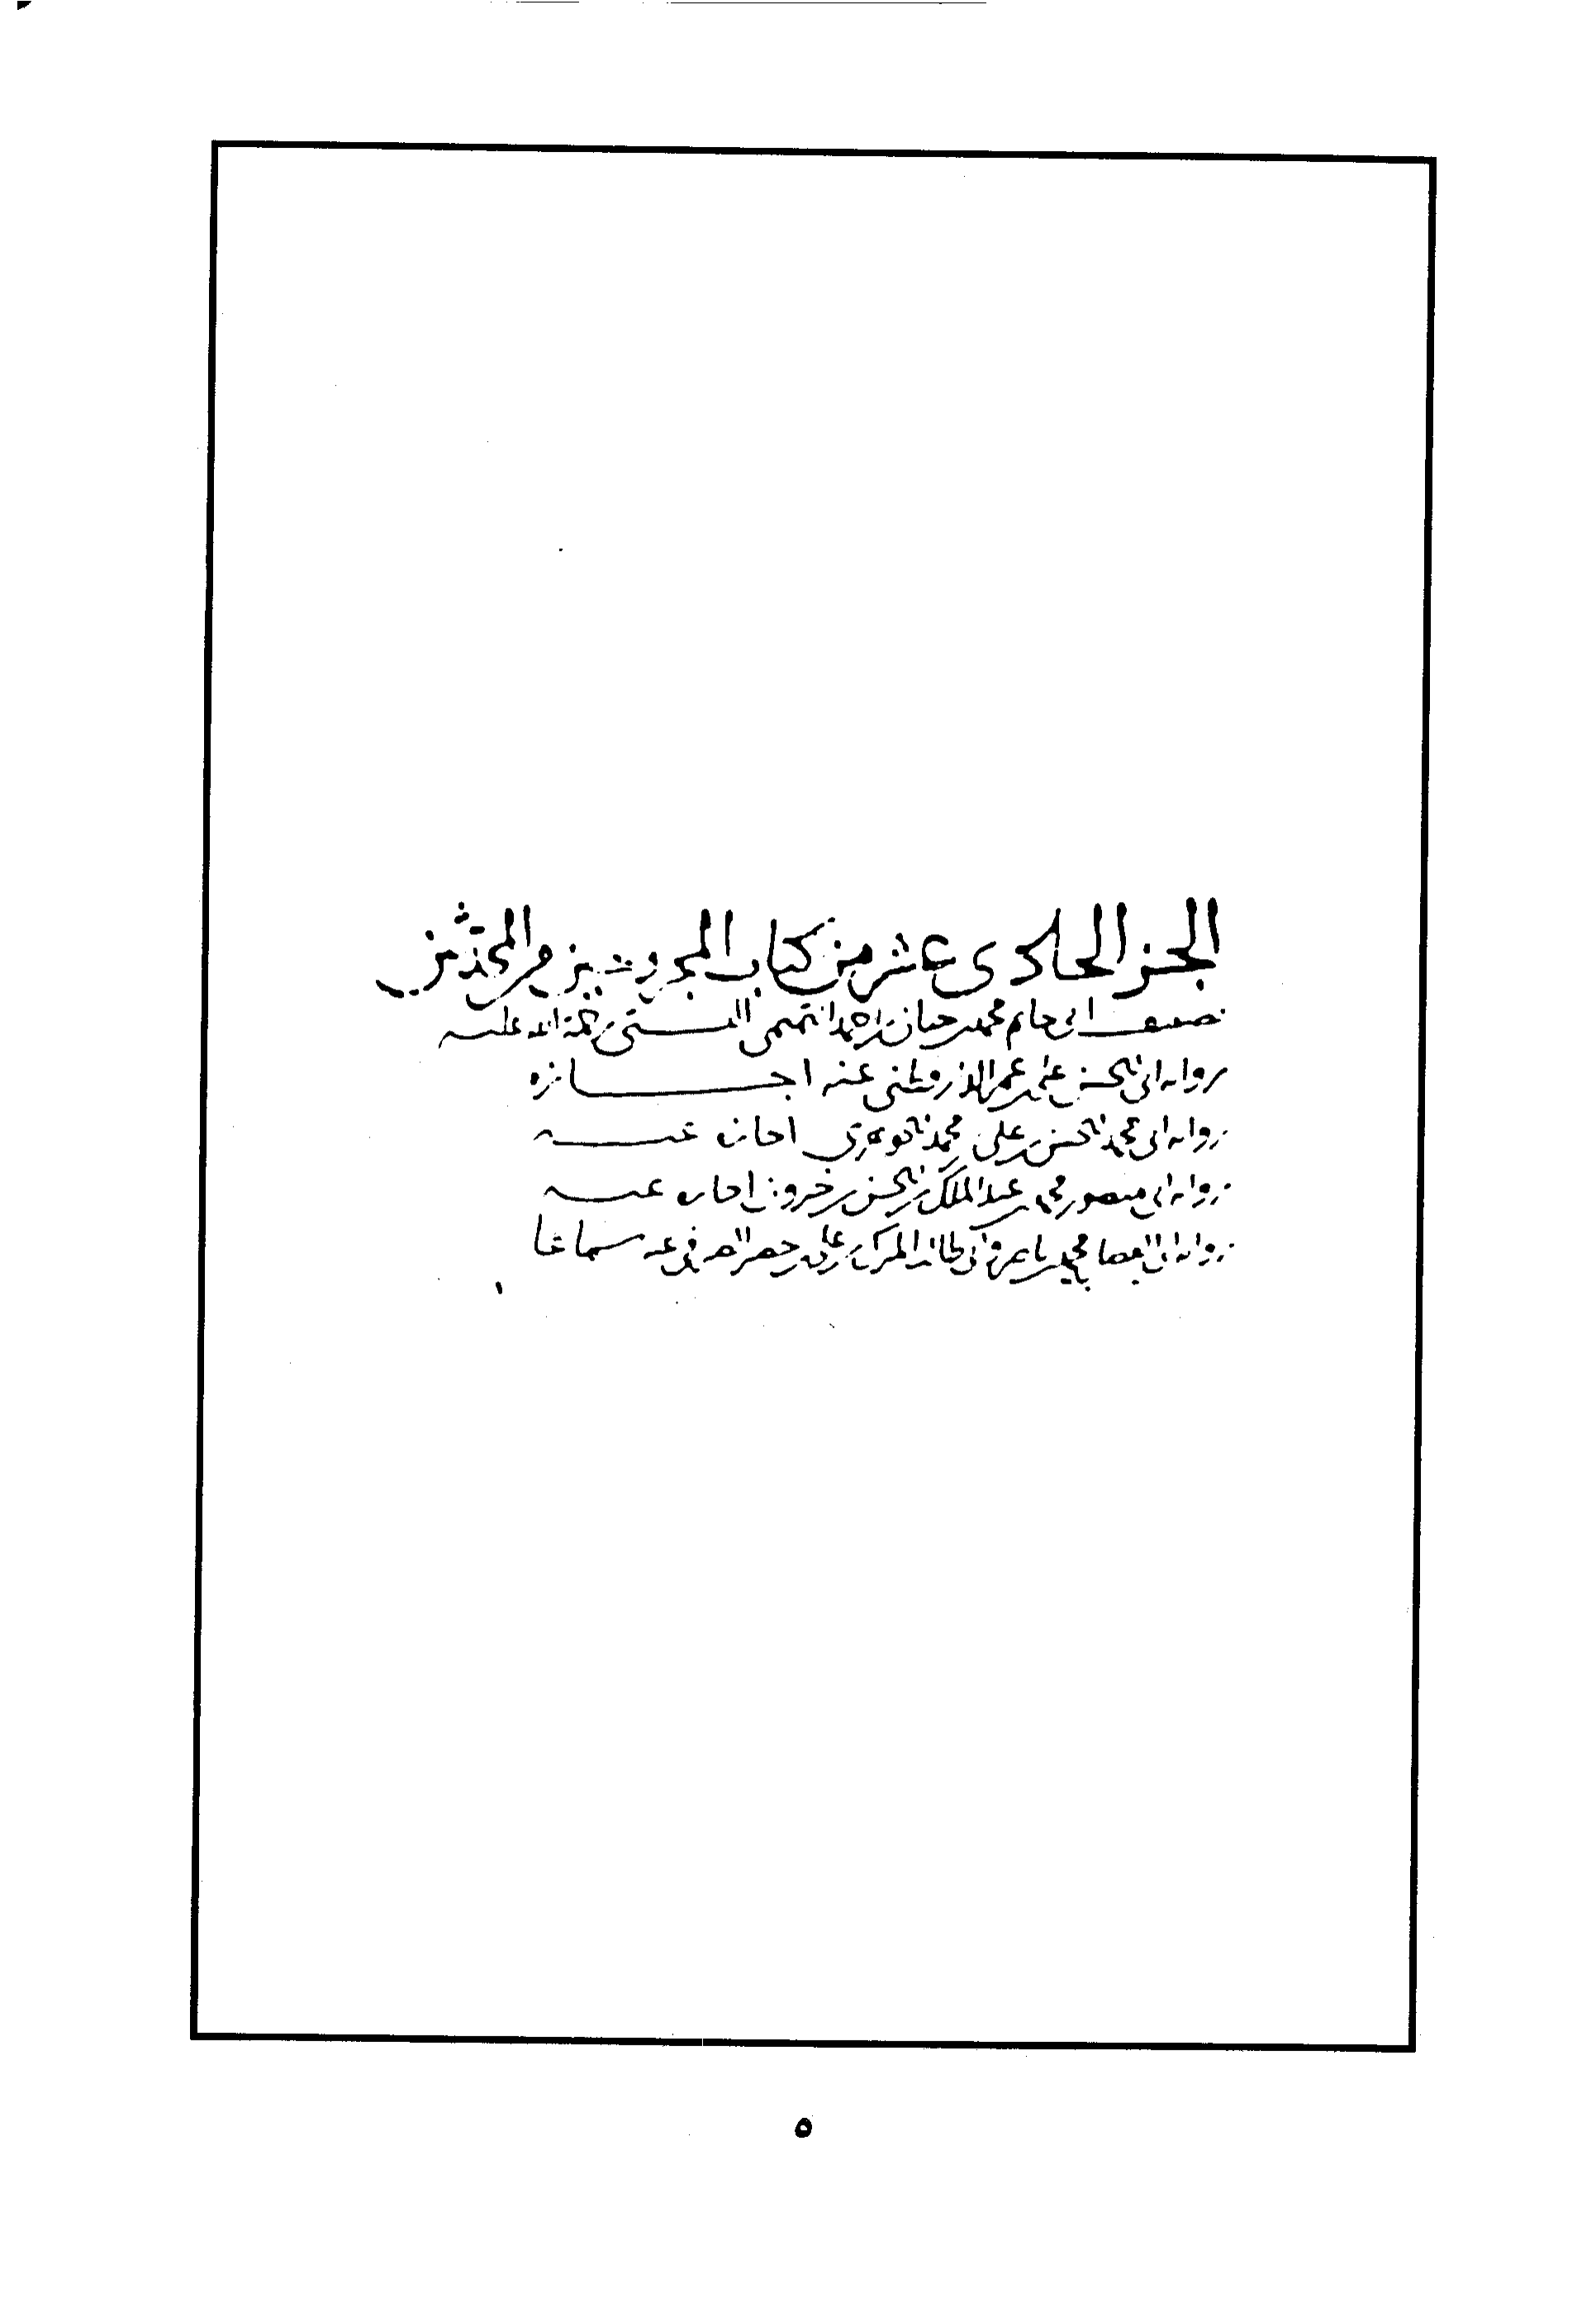 الجزء الحادى عاشر من كتاب المجروحين من المحدثين
تصنيف ابى حاتم محمد بن حبان بن احمد التميمى البستى رحمة الله عليه
رواية ابى الحسن على بن عمر الدارقطنى عنه اجازه
رواية ابى محمد الحسن بن على بن محمد الجوهرى اجازة عنه
رواية ابى منصور محمد بن عبد الملك بن الحسن بن خيرون اجازة عنه
رواية ابى محمد المبارك بن على عنه سماعا
٥